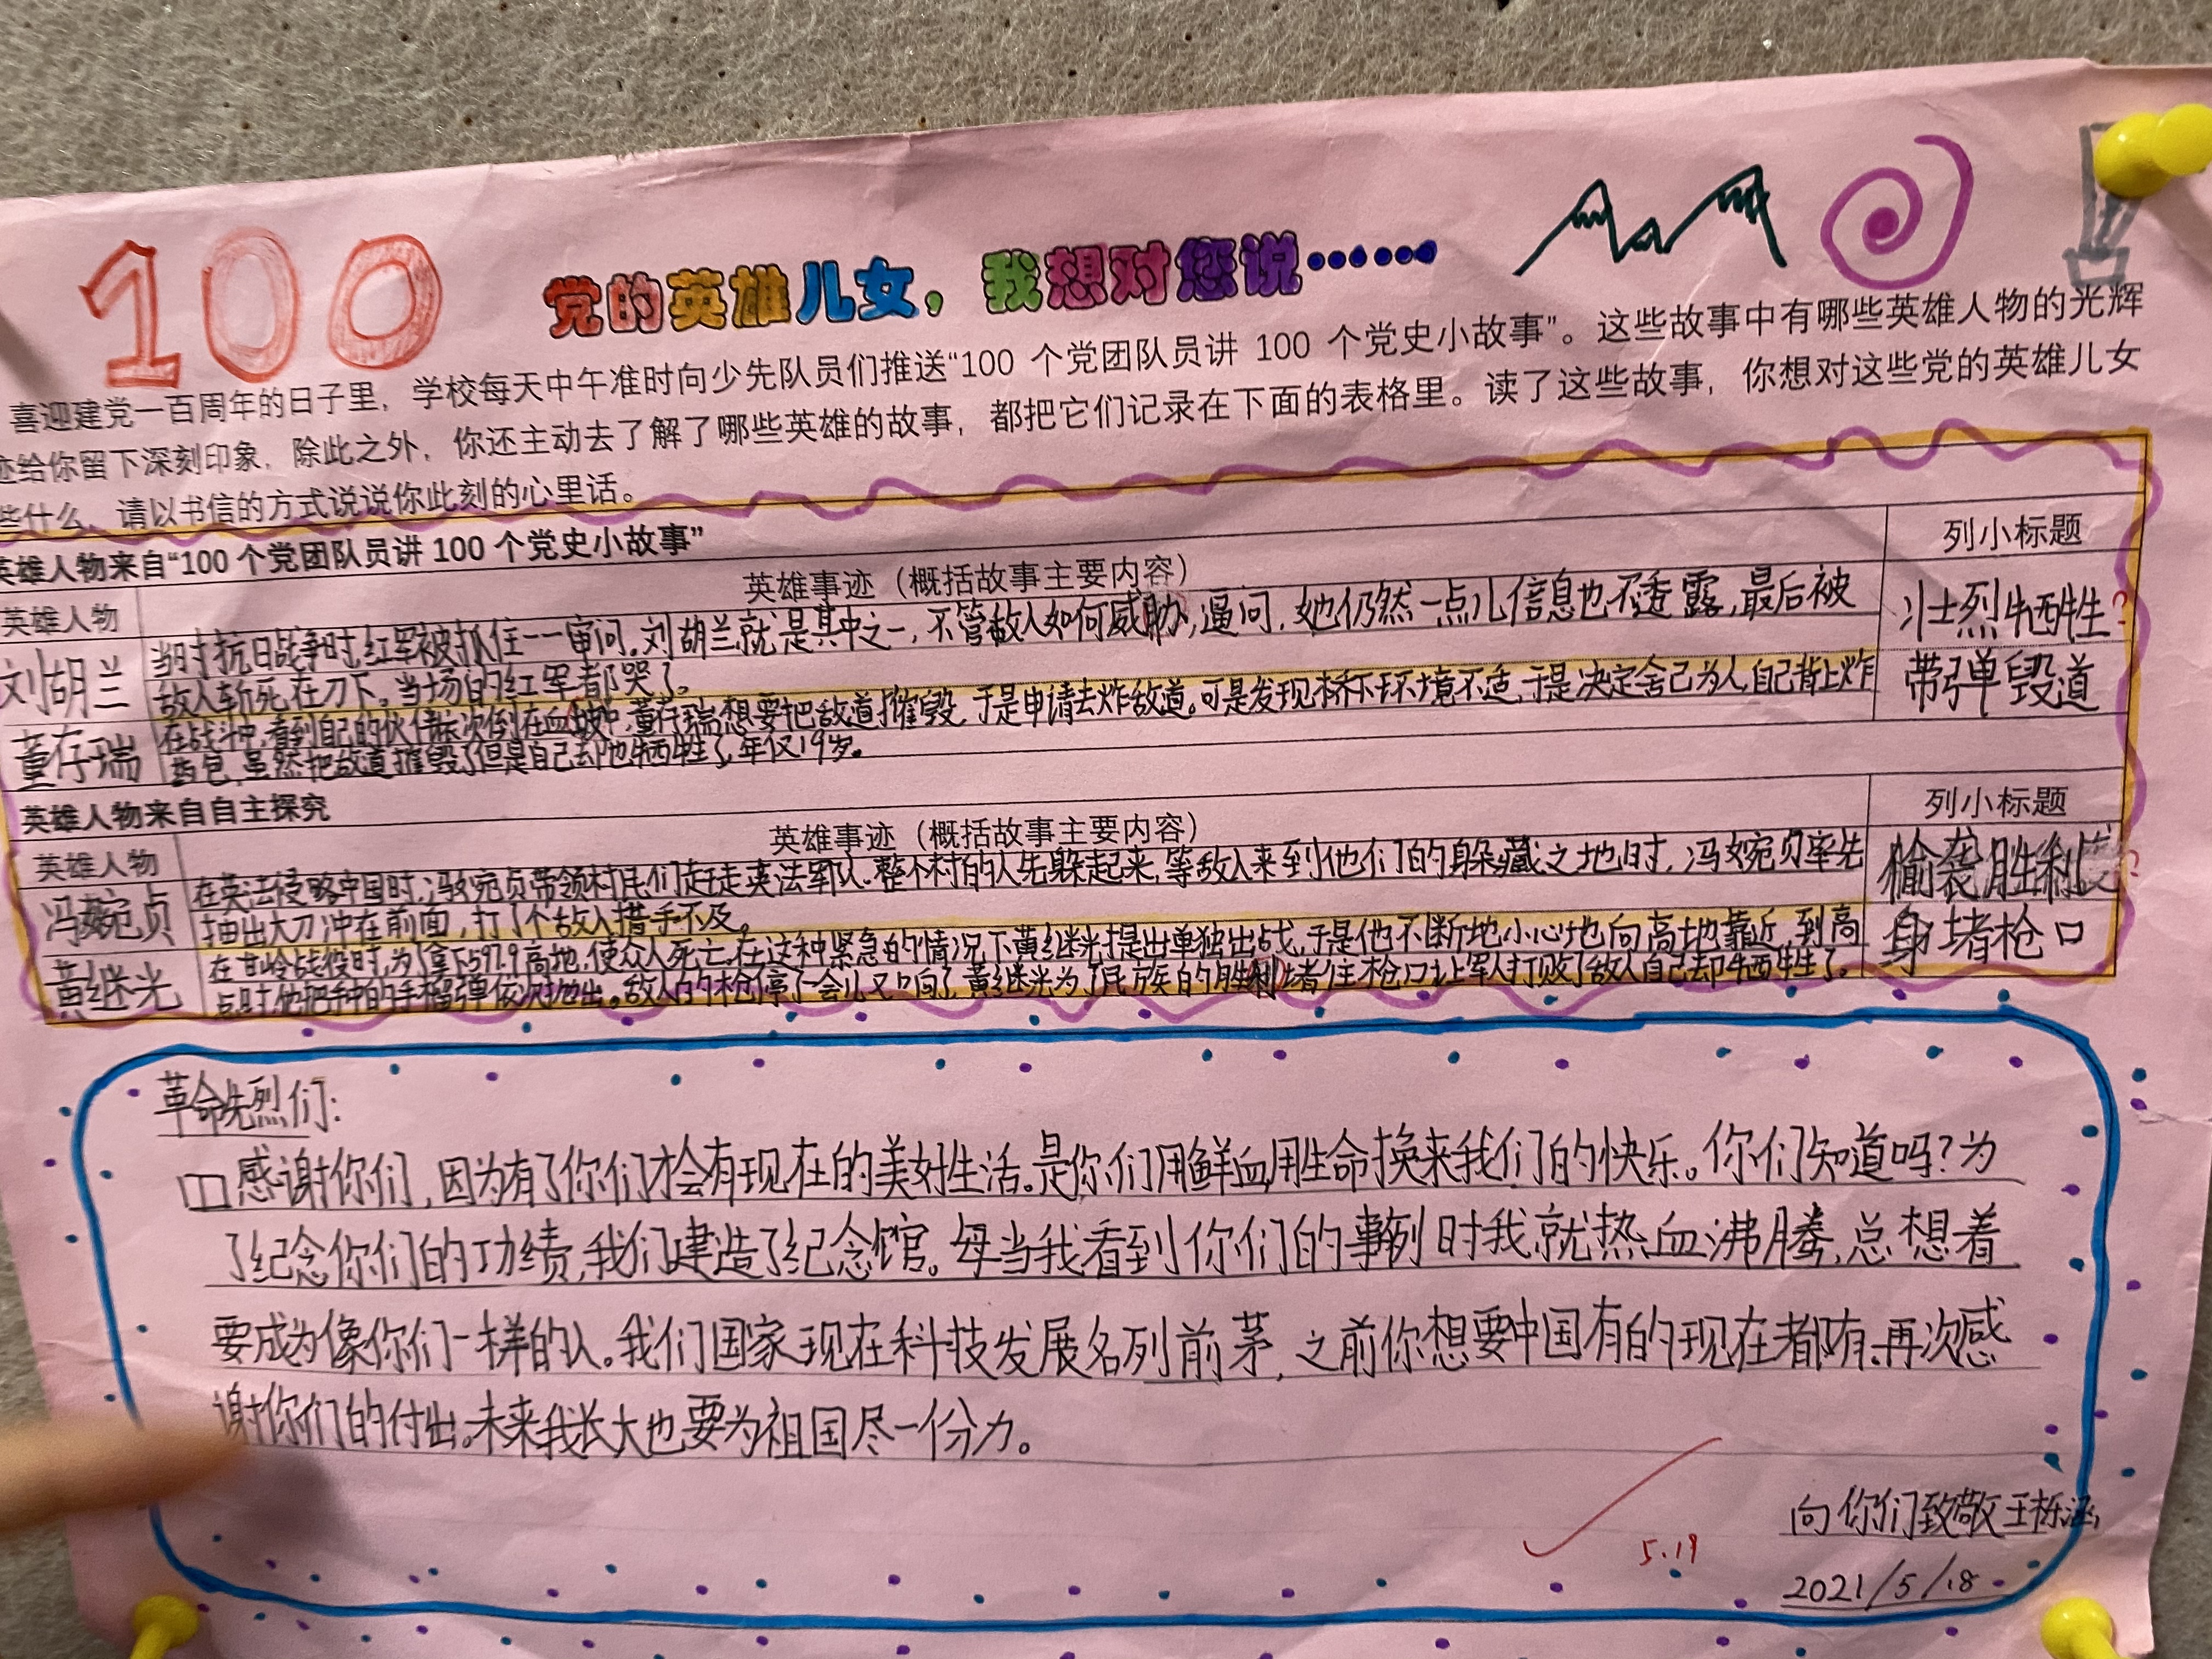 100
党的英雄儿女，我想对您说……
喜迎建党一百周年的日子里，学校每天中午准时向少先队员们推送“100 个党团队员讲 100 个党史小故事”。这些故事中有哪些英雄人物的光辉
迹给你留下深刻印象，除此之外，你还主动去了解了哪些英雄的故事，都把它们记录在下面的表格里。读了这些故事，你想对这些党的英雄儿女
些什么，请以书信的方式说说你此刻的心里话。
英雄人物来自“100 个党团队员讲 100 个党史小故事”
英雄人物 英雄事迹（概括故事主要内容） 列小标题
刘胡兰 当时抗日战争时,红军被抓住一一审问。刘胡兰就是其中之一,不管敌人如何威胁,逼问,她仍然一点儿信息也不透露,最后被 壮烈牺牲?
敌人斩死在刀下。当场的红军都哭了。
董存瑞 在战斗中,看到自己的伙伴依次倒在血坡中,董存瑞想要把敌道摧毁,于是申请去炸敌道。可是发现桥下环境不适,于是决定舍己为人,自己背上炸 带弹毁道
药包,虽然把敌道摧毁了但是自己却也牺牲了,年仅19岁。
英雄人物来自自主探究
英雄人物 英雄事迹（概括故事主要内容） 列小标题
冯婉贞 在英法侵略中国时,冯婉贞带领村民们赶走英法军队.整个村的人先躲起来,等敌人来到他们的躲藏之地时,冯婉贞率先 偷袭胜利
抽出大刀冲在前面,打了个敌人措手不及。
黄继光 在甘岭战役时,为了拿下597.9高地,使众人死亡,在这种紧急的情况下黄继光提出单独出战,于是他不断地小心地向高地靠近,到高 身堵枪口
点时,他把手中的手榴弹依次抛出。敌人的枪停了一会儿又响了,黄继光为了民族的胜利堵住枪口让军人打败了敌人自己却牺牲了。
革命先烈们:
感谢你们,因为有了你们才会有现在的美好生活。是你们用鲜血,用生命换来我们的快乐。你们知道吗?为
了纪念你们的功绩,我们建造了纪念馆。每当我看到你们的事例时我就热血沸腾,总想着
要成为像你们一样的人。我们国家现在科技发展名列前茅,之前你想要中国有的现在者都有,再次感
谢你们的付出。未来我长大也要为祖国尽一份力。
向你们致敬 王栎涵
5.19
2021/5/18